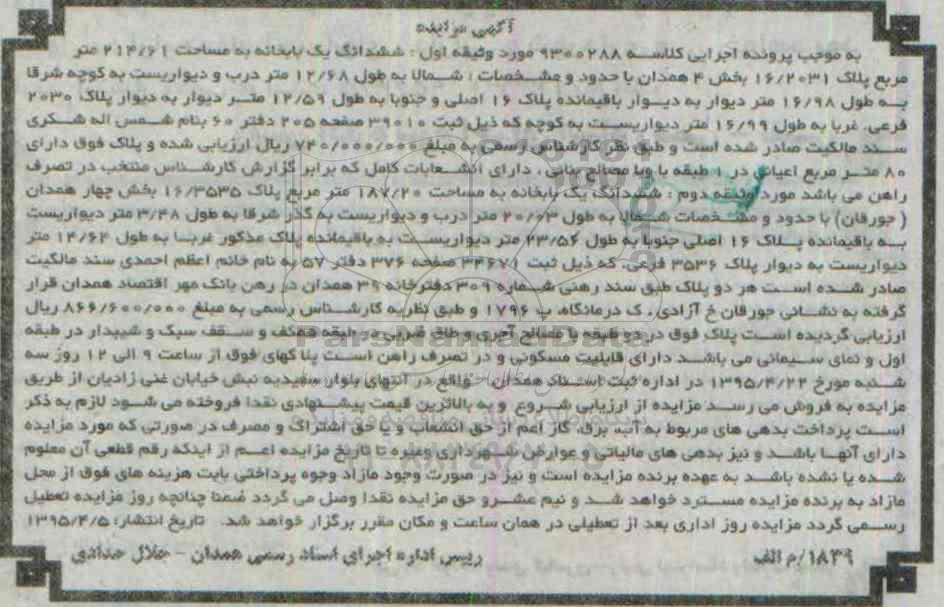 آگهی مزایده
به موجب پرونده اجرایی کلاسه ۹۳۰۰۲۸۸ مورد وثیقه اول : ششدانگ یک بابخانه به مساحت ۲۱۴/۶۱ متر
مربع پلاک ۱۶/۲۰۳۱ بخش ۴ همدان با حدود و مشخصات : شمالا به طول ۱۲/۶۸ متر درب و دیواریست به کوچه شرقا
به طول ۱۶/۹۸ متر دیوار به دیوار باقیمانده پلاک ۱۶ اصلی و جنوبا به طول ۱۲/۵۹ متر دیوار به دیوار پلاک ۲۰۳۰
فرعی. غربا به طول ۱۶/۹۹ متر دیواریست به کوچه که ذیل ثبت ۳۹۰۱۰ صفحه ۲۰۵ دفتر ۶۰ بنام شمس اله شکری
سند مالکیت صادر شده است و طبق نظر کارشناس رسمی به مبلغ ۷۴۰/۰۰۰/۰۰۰ ریال ارزیابی شده و پلاک فوق دارای
۸۰ متر مربع اعیانی در ۱ طبقه با وبا مصالح بنایی ، دارای انشعابات کامل که برابر گزارش کارشناس منتخب در تصرف
راهن می باشد مورد وثیقه دوم : ششدانگ یک بابخانه به مساحت ۱۸۷/۲۰ متر مربع پلاک ۱۶/۳۵۳۵ بخش چهار همدان
( جورقان) با حدود و مشخصات شمالا به طول ۲۰/۰۳ متر درب و دیواریست به گذر شرقا به طول ۳/۴۸ متر دیواریست
به باقیمانده پلاک ۱۶ اصلی جنوبا به طول ۲۳/۵۶ متر دیواریست به باقیمانده پلاک مذکور غربا به طول ۱۴/۶۴ متر
دیواریست به دیوار پلاک ۳۵۳۶ فرعی. که ذیل ثبت ۳۴۶۷۱ صفحه ۳۷۶ دفتر ۵۷ به نام خانم اعظم احمدی سند مالکیت
صادر شده است هر دو پلاک طبق سند رهنی شماره ۳۰۹ دفترخانه ۳۹ همدان در رهن بانک مهر اقتصاد همدان قرار
گرفته به نشانی جورقان خ آزادی ، ک درمانگاه، پ ۱۷۹۶ و طبق نظریه کارشناس رسمی به مبلغ ۸۶۶/۶۰۰/۰۰۰ ریال
ارزیابی گردیده است پلاک فوق در دو طبقه با مصالح آجری و طاق ضربی در طبقه همکف و سقف سبک و شیبدار در طبقه
اول و نمای سیمانی می باشد دارای قابلیت مسکونی و در تصرف راهن است پلاکهای فوق از ساعت ۹ الی ۱۲ روز سه
شنبه مورخ ۱۳۹۵/۴/۲۲ در اداره ثبت اسناد همدان ، واقع در انتهای بلوار سعیدیه نبش خیابان غنی زادیان از طریق
مزایده به فروش می رسد مزایده از ارزیابی شروع و به بالاترین قیمت پیشنهادی نقدا فروخته می شود لازم به ذکر
است پرداخت بدهی های مربوط به آب، برق، گاز اعم از حق انشعاب و یا حق اشتراک و مصرف در صورتی که مورد مزایده
دارای آنها باشد و نیز بدهی های مالیاتی و عوارض شهرداری وغیره تا تاریخ مزایده اعم از اینکه رقم قطعی آن معلوم
شده یا نشده باشد به عهده برنده مزایده است و نیز در صورت وجود مازاد وجوه پرداختی بابت هزینه های فوق از محل
مازاد به برنده مزایده مسترد خواهد شد و نیم عشر و حق مزایده نقدا وصل می گردد ضمنا چنانچه روز مزایده تعطیل
رسمی گردد مزایده روز اداری بعد از تعطیلی در همان ساعت و مکان مقرر برگزار خواهد شد. تاریخ انتشار: ۱۳۹۵/۴/۵
۱۸۴۹/م الف رییس اداره اجرای اسناد رسمی همدان - جلال حدادی
ParsNamadData